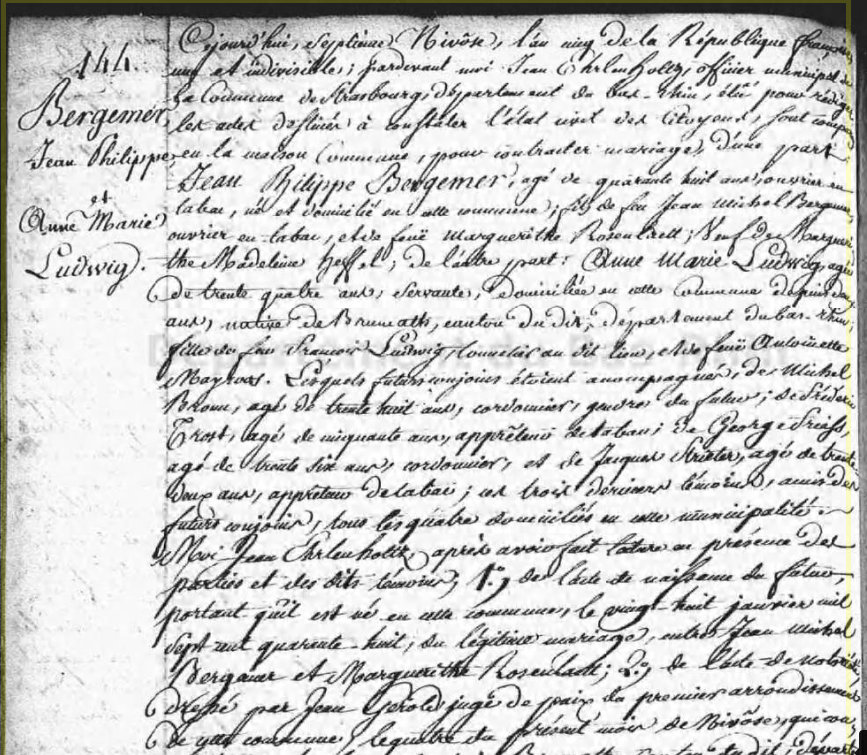 144.
Bergemer,
Jean Philippe,
et
Anne Marie
Ludwig.
Cejourd'hui, septième Nivôse, l'an cinq de la République française,
une et indivisible; pardevant moi Jean Ehrlenholtz, officier municipal de
la Commune de Strasbourg, département du bas-rhin, élu pour rédiger
les actes destinés à constater l'état civil des Citoyens, sont comparus
en la maison Commune, pour contracter mariage, d'une part
Jean Philippe Bergemer, agé de quarante huit ans, ouvrier en
tabac, né et domicilié en cette commune; fils de feu Jean Michel Bergemer,
ouvrier en tabac, et de feuë Marguerithe Rosenblatt; Veuf de Margueri
the Madeleine Heffel; de l'autre part: Anne Marie Ludwig, agée
de trente quatre ans, servante, domiciliée en cette Commune depuis dix
ans, native de Brumath, canton du dit, département du bas-rhin,
fille de feu François Ludwig, tonnelier au dit lieu, et de feuë Antoinette
Mayross. Lesquels futurs conjoins étoient accompagnés, de Michel
Bronn, agé de trente huit ans, cordonnier, gendre du futur; de Fréderic
Trost, agé de cinquante ans, apprêteur de tabac; de George Freiss,
agé de trente six ans, cordonnier, et de Jacques Strieter, agé de trente
deux ans, apprêteur de tabac; ces trois derniers témoins, amis des
futurs conjoins, tous les quatre domiciliés en cette municipalité.
Moi Jean Ehrlenholtz, après avoir fait lecture en présence des
parties et des dits témoins, 1.º, de l'acte de naissance du futur,
portant qu'il est né en cette commune, le vingt-huit janvier mil
sept cent quarante-huit, du légitime mariage, entre Jean Michel
Bergemer et Marguerithe Rosenblatt; 2.º, de l'acte de notoriété,
dressé par Jean Gérold juge de paix du premier arrondissement
de cette commune, le quatre du présent mois de Nivôse, qui